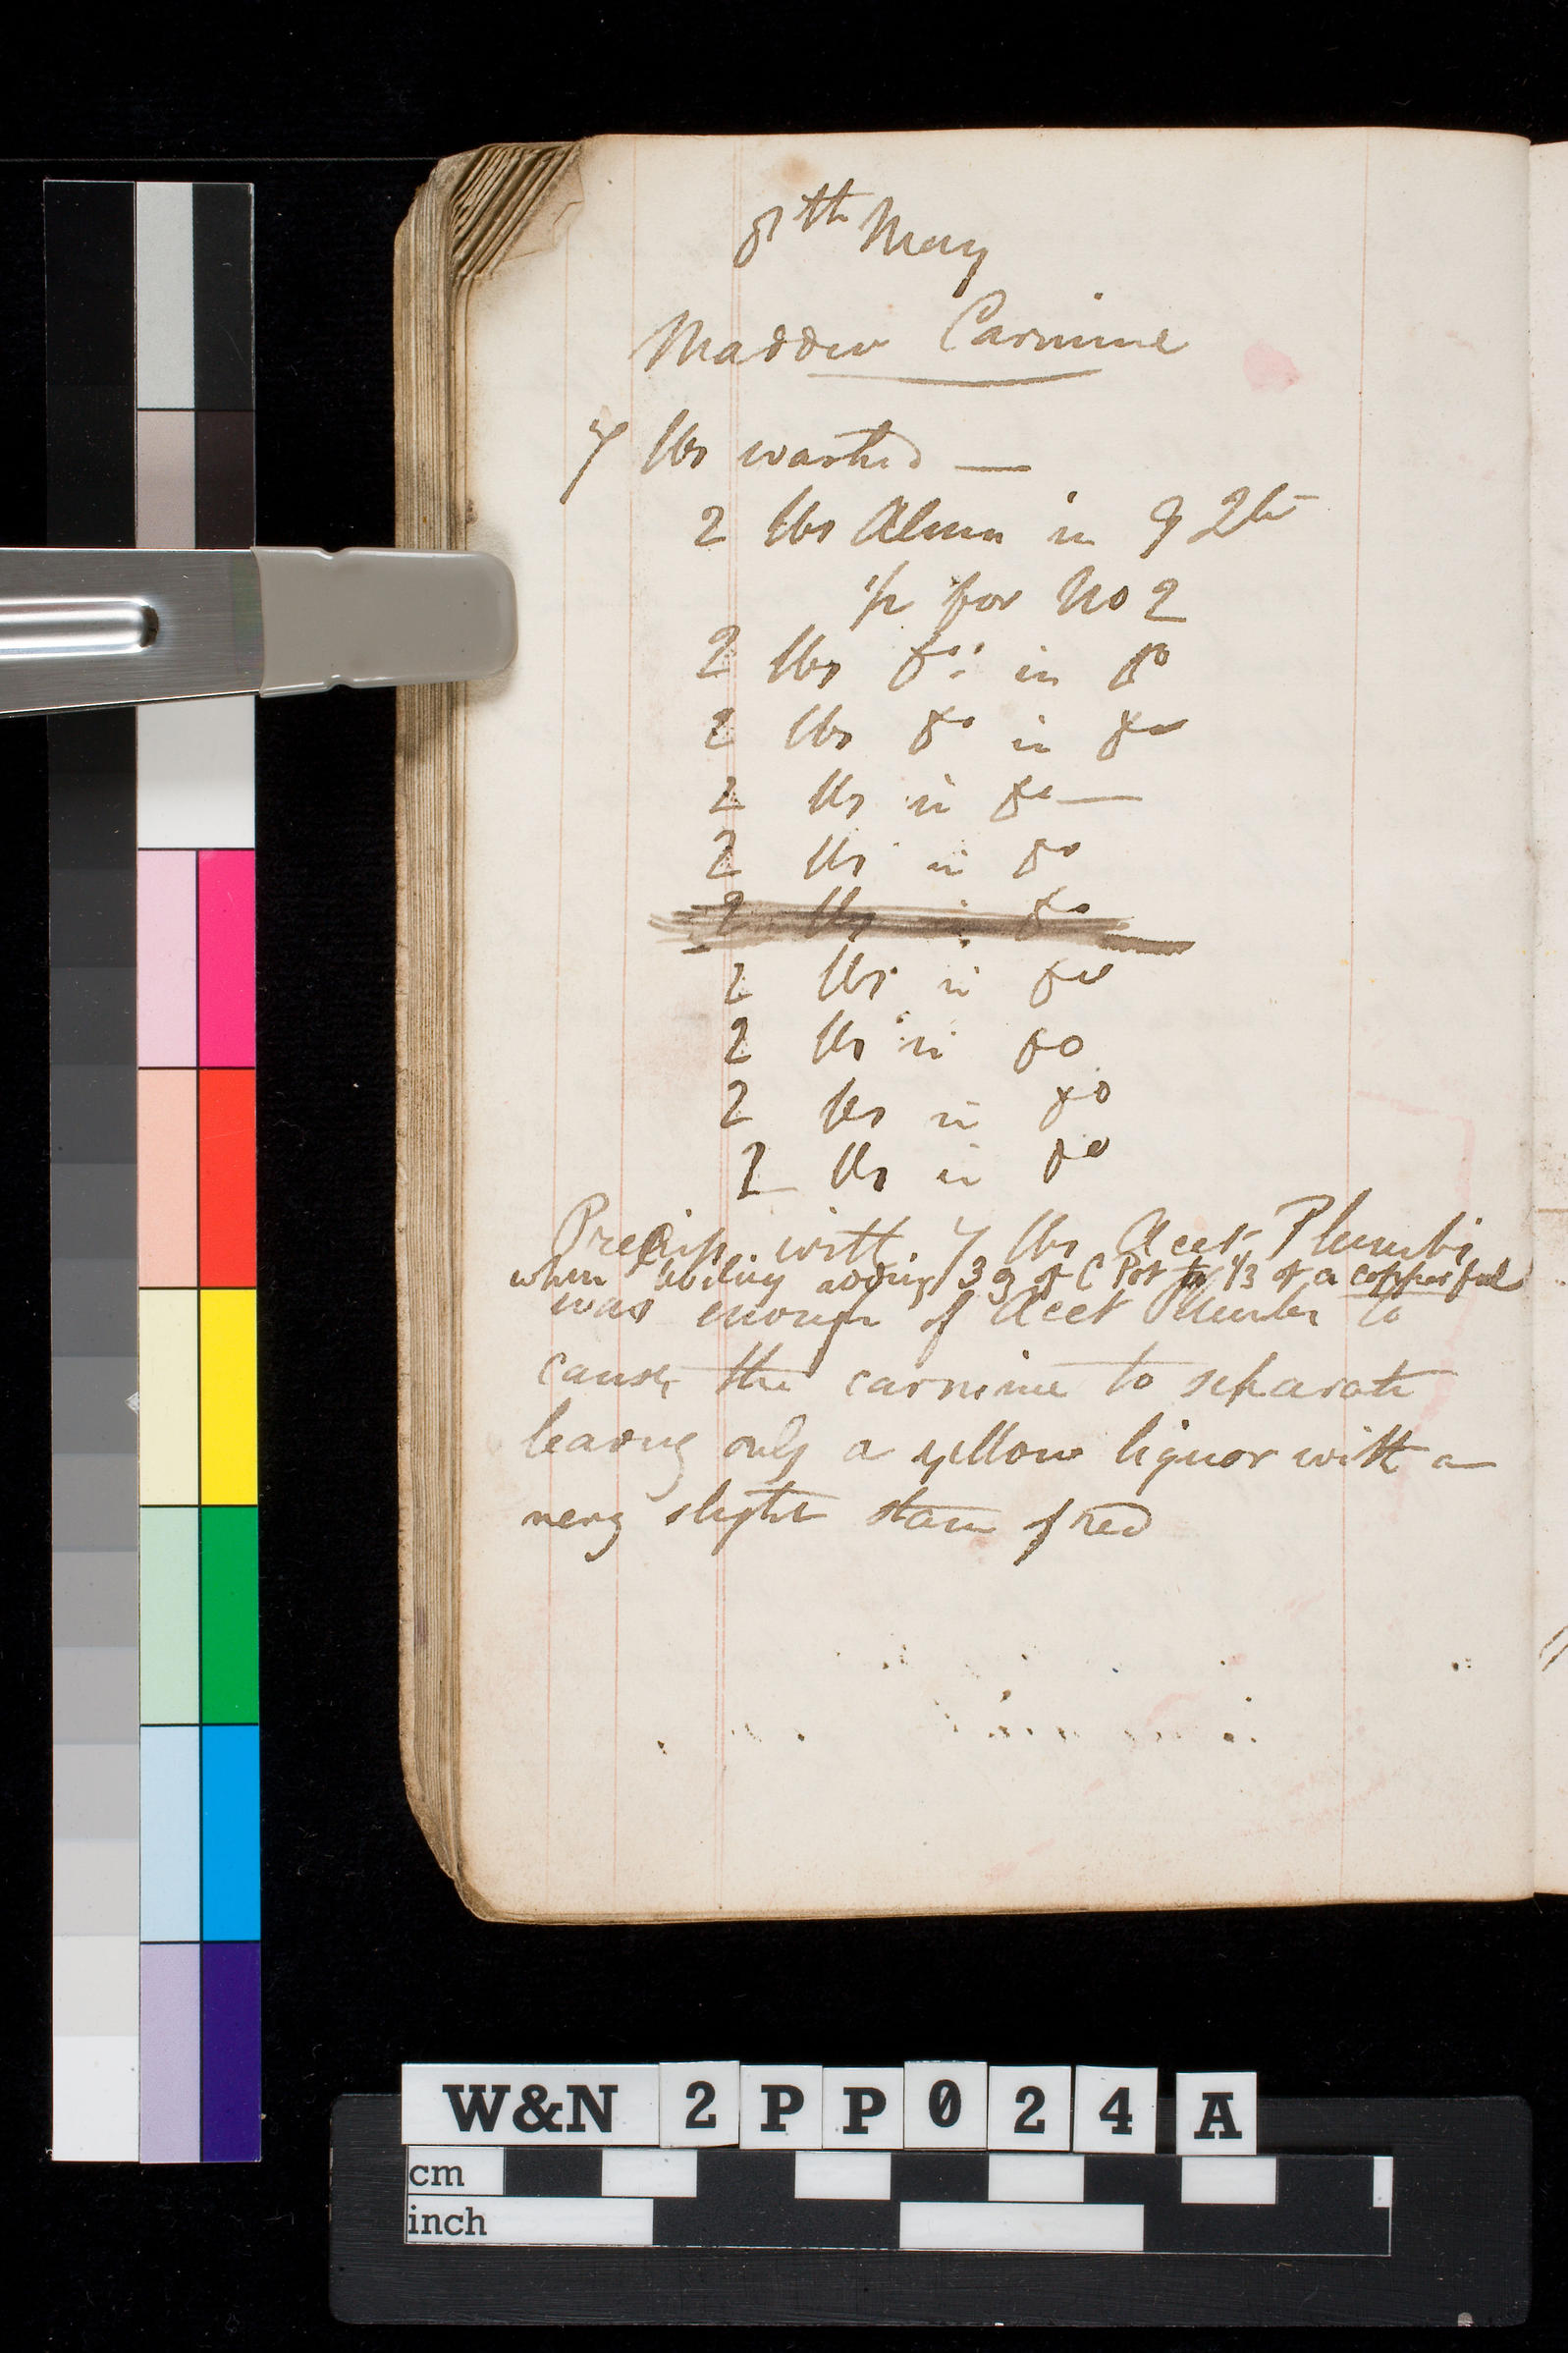 8th May
Madder Carmine
7 lbs washed —
2 lbs Alum in 9 Qts
1/2 for No 2
2 lbs do: in do
2 lbs do in do
2 lbs in do —
2 lbs in do
2 lbs in do
2 lbs in do
2 lbs in do
2 lbs in do
2 lbs in do
Precip. with 7 lbs Acet Plumbi
when boiling adding 3 g of C Pot to 1/3 of a copper full
was enough of Acet Plumbi to
cause the carmine to separate
leaving only a yellow liquor with a
very slight stain of red
W&N 2PP024A
cm
inch